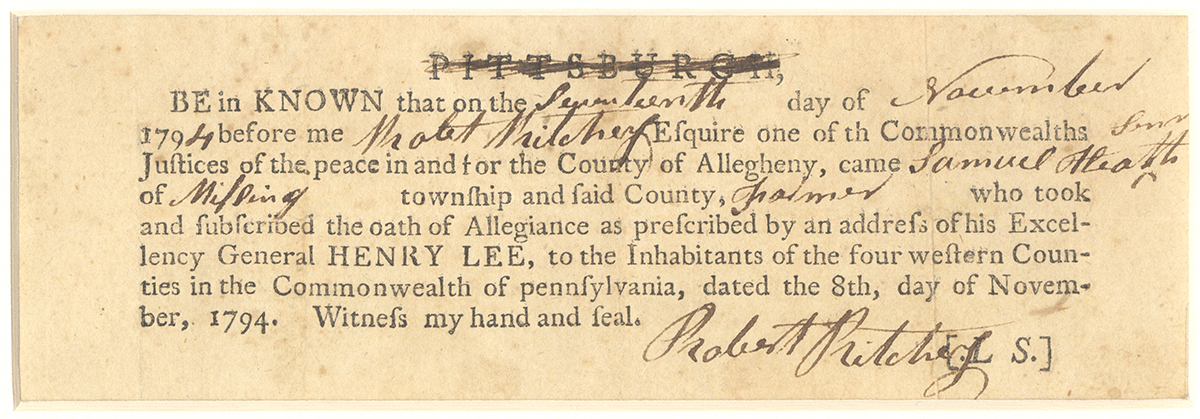 PITTSBURGH,
BE in KNOWN that on the Seventeenth day of November
1794 before me Robet Ritchey Esquire one of th Commonwealths
Juſtices of the peace in and for the County of Allegheny, came Samuel Heath Senr
of Miffling townſhip and ſaid County, Farmer who took
and ſubſcribed the oath of Allegiance as preſcribed by an addreſs of his Excel-
lency General HENRY LEE, to the Inhabitants of the four weſtern Coun-
ties in the Commonwealth of pennſylvania, dated the 8th, day of Novem-
ber, 1794. Witneſs my hand and ſeal.
Robert Ritchey [.L S.]